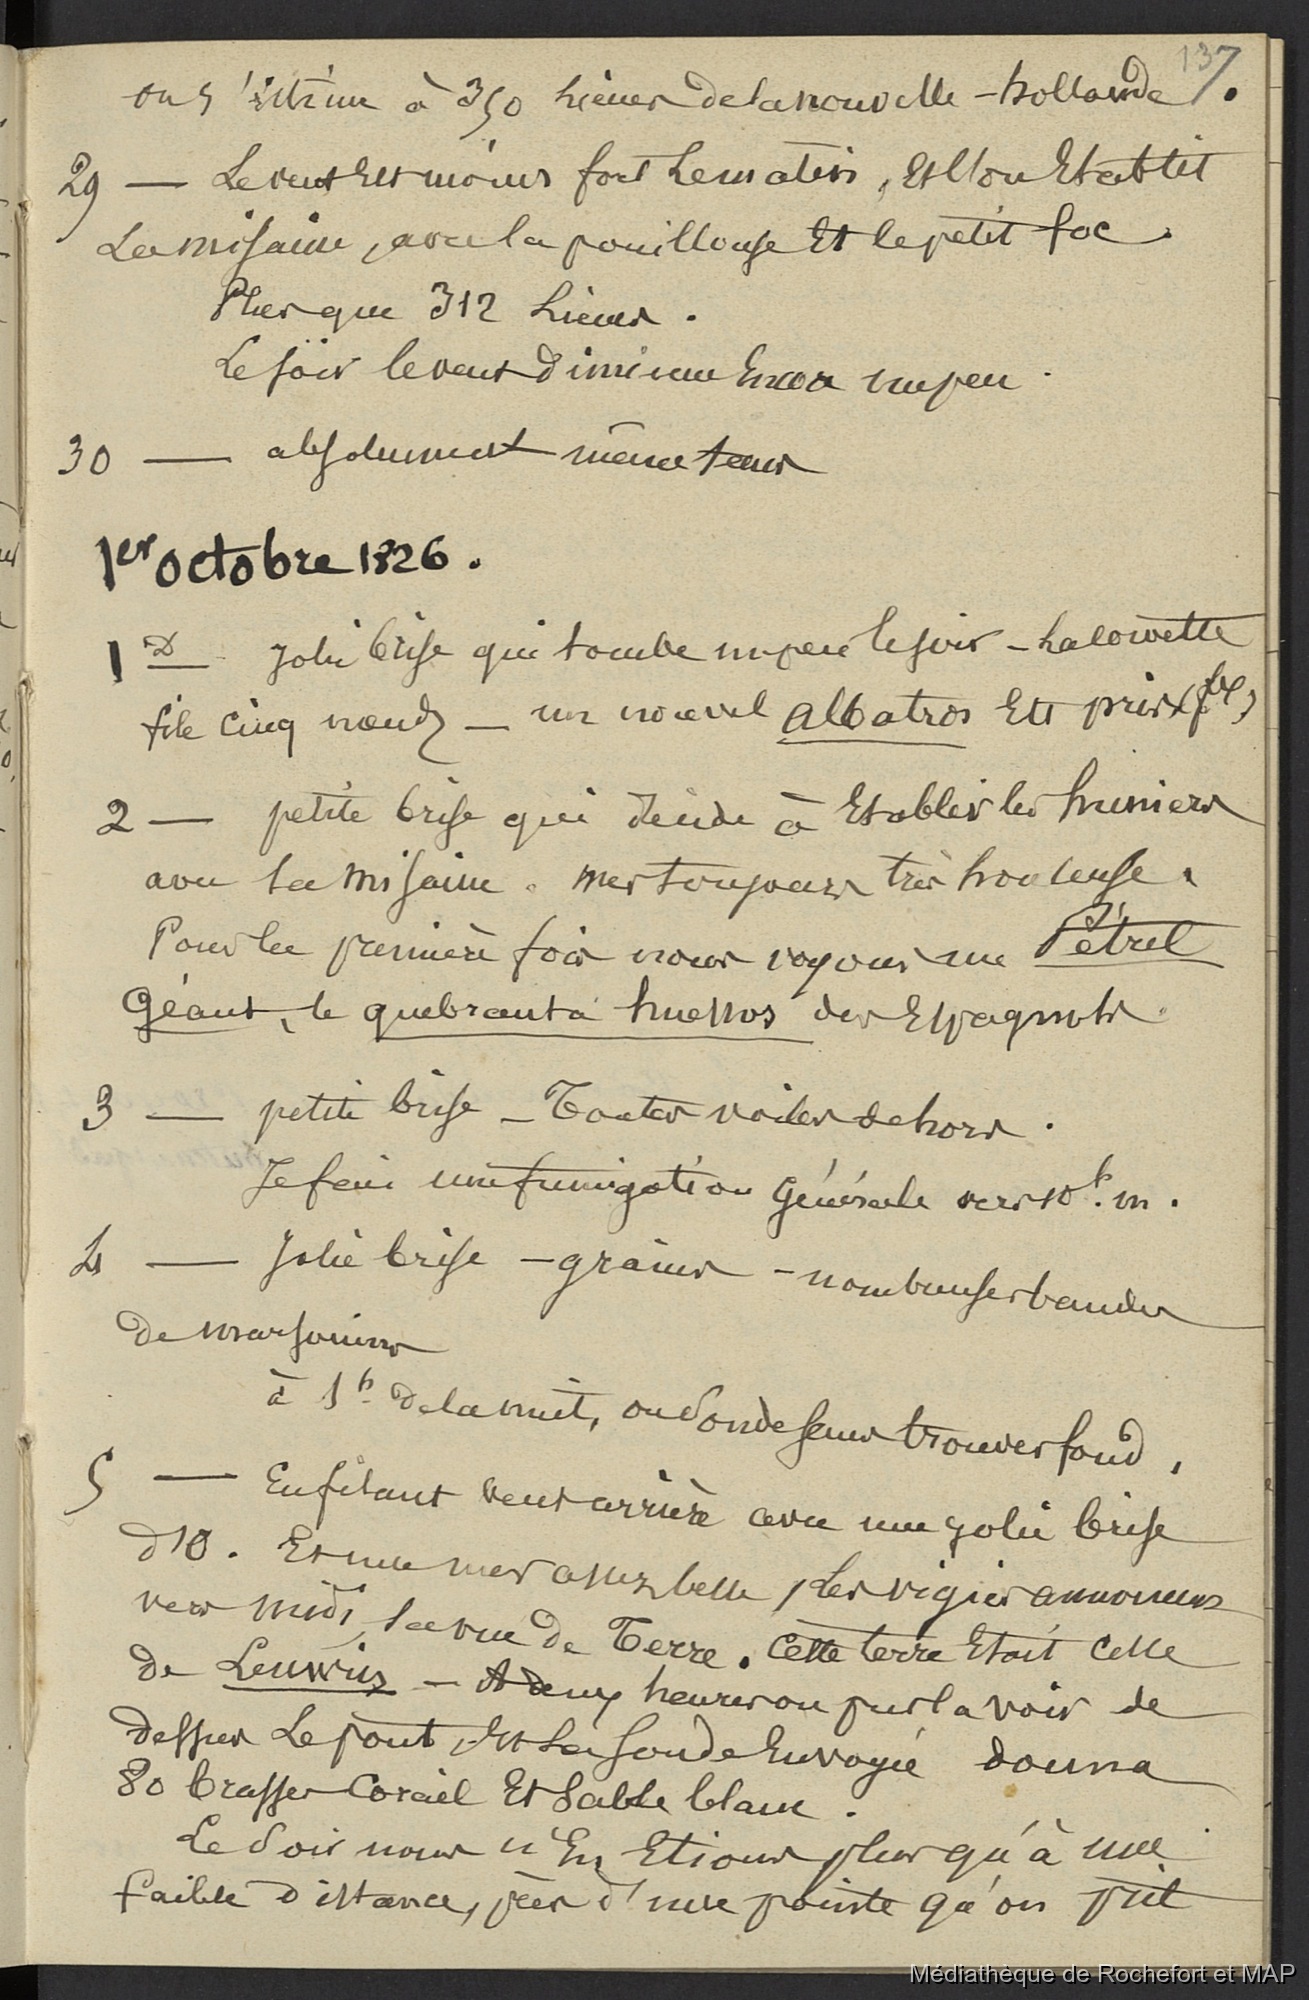 137.
on s'estime à 350 lieues de la nouvelle-hollande
29 — Le vent est moins fort le matin, et l'on Etablit
La misaine, avec la pouillouse Et le petit foc.
Plus que 312 lieues.
Le soir le vent diminue Encore un peu.
30 — absolument même tems
1er octobre 1826.
1 D — Jolie brise qui tombe un peu le soir - la corvette
file cinq nœuds — un nouvel albatros Est pris
2 — petite brise qui décide à Etablir les huniers
avec la misaine. mer toujours très houleuse.
Pour la première fois nous voyons un Pétrel
Géant, le quebranta huessos des Espagnols.
3 — petite brise - Toutes voiles dehors.
Je fais une fumigation Générale vers 10h. m.
4 — Jolie brise - grains - nombreuses bandes
de marsouins
à 1h. de la nuit, on sonde sans trouver fond,
5 — En filant vent arrière avec une jolie brise
d'O. Et une mer assez belle, les vigies annoncent
vers midi la vue de Terre. Cette terre Etait celle
de Leuwin - A deux heures on put la voir de
dessus Le pont, Et la sonde Envoyée donna
80 brasses Corail Et Sable blanc.
Le Soir nous n'En Etions plus qu'à une
faible distance, près d'une pointe qu'on prit
Médiathèque de Rochefort et MAP